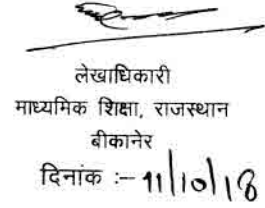 लेखाधिकारी
माध्यमिक शिक्षा, राजस्थान
बीकानेर
दिनांक :– 11/10/18